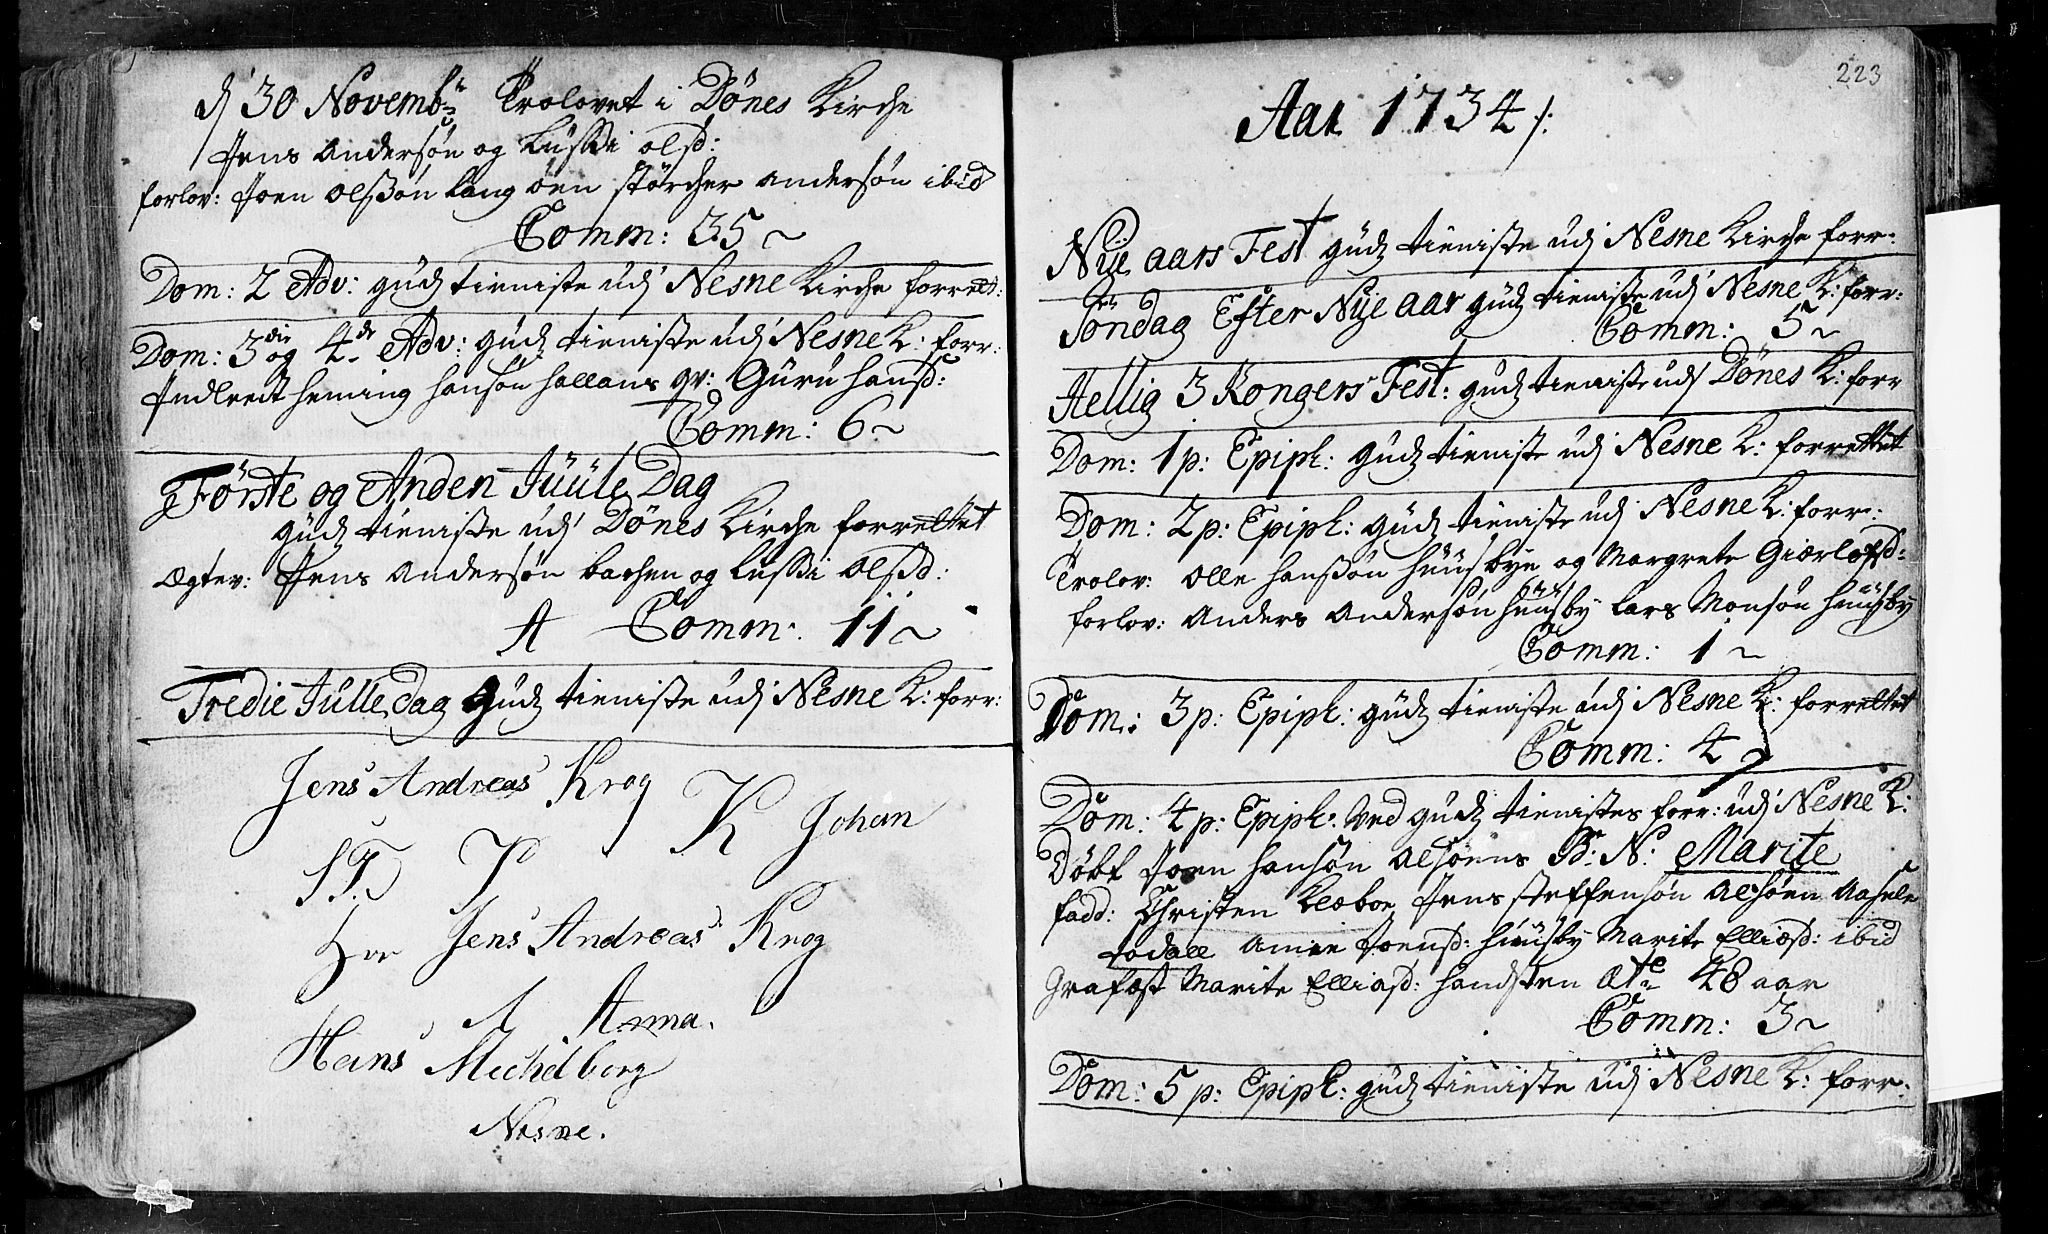 d 30 Novembr Trolovet i Dönes Kirche
Jens Andersøn og Lussi olsd:
forlov: Joen Olsøn Lang öen störcher Andersøn ibid
Comm: 35 ~
Dom: 2 Adv: gudz tieniste udj Nesne Kirche forrett:
Dom: 3die og 4de Adv: gudz tieniste udj Nesne K: forr:
Indleedt Heming Hansøn Hallans qv: Guru Hansd:
Comm: 6 ~
Förste og Anden Juule Dag
gudz tieniste udj Dönes Kirche forrettet
Ægtev: Jens Andersøn bachen og Lussi Olsd:
A Comm: 11 ~
Tredie Julle dag Gudz tieniste udj Nesne K: forr:
Jens Andreas Krog K Johan
Hr Jens Andreas Krog
A Anna.
Hans Mechelborg
Nesne.
223
Aar 1734 /:
Nye aars Fest gudz tieniste udj Nesne Kirche forr:
Söndag Efter Nye aar gudz tieniste udj Nesne K: forr:
Comm: 5 ~
Hellig 3 Kongers Fest: gudz tieniste udj Dönes K: forr
Dom: 1 p: Epiph: gudz tieniste udj Nesne K: forrettet
Dom: 2 p: Epiph: gudz tieniste udj Nesne K: forr:
Trolov: Olle Hansøn Huusbye og Margrete Giærlofsd:
forlov: Anders Andersøn Huusby Lars Monsøn Huusby
Comm: 1 ~
Dom: 3 p: Epiph: gudz tieniste udj Nesne K: forrettet
Comm: 4
Dom: 4 p: Epiph: Ved gudz tienistes forr: udj Nesne K:
Döbt Joen Hansøn Alsöens B: N: Marite
fadd: Christen Klæboe Jens Steffensøn Alsöen Aasele
todall Anne Joensd: Huusby Marite Elliæsd: ibid
Grafæst Marite Elliasd: Handsten Æt: 48 aar
Comm: 3 ~
Dom: 5 p: Epiph: gudz tieniste udj Nesne K: forr: